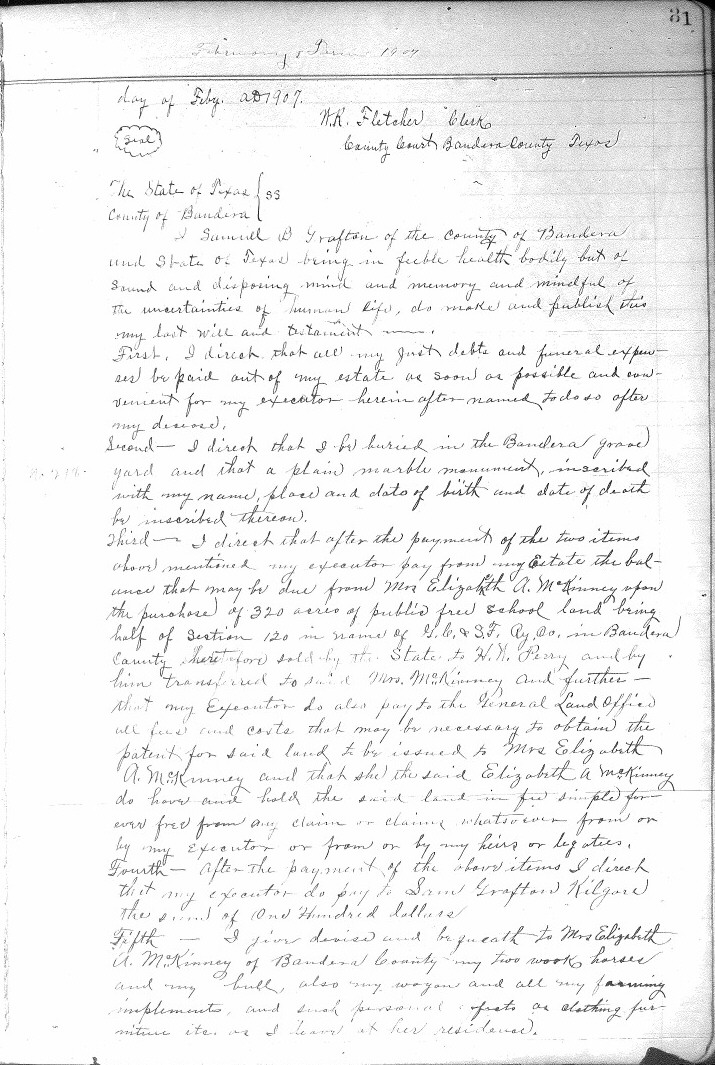 31
February & Term 1907
day of Feby. AD 1907.
W.K. Fletcher Clerk
Seal
County Court Bandera County Texas
The State of Texas { SS
County of Bandera
I Samuel B Grafton of the County of Bandera
and State of Texas being in feeble health bodily but of
sound and disposing mind and memory and mindful of
the uncertainties of human life, do make and publish this
my last will and testament.
First, I direct that all my just debts and funeral expen-
ses be paid out of my estate as soon as possible and con-
venient for my executor herein after named to do so after
my decease.
Second — I direct that I be buried in the Bandera grave
yard and that a plain marble monument, inscribed
with my name, place and date of birth and date of death
be inscribed thereon.
Third — I direct that after the payment of the two items
above mentioned my executor pay from my Estate the bal-
ance that may be due from Mrs Elizabeth A. McKinney upon
the purchase of 320 acres of public free school land being
half of Section 120 in name of G.C. & S.F. Ry. Co. in Bandera
County heretofore sold by the State to H.N. Perry and by
him transferred to said Mrs. McKinney and further —
that my Executor do also pay to the General Land Office
all fees and costs that may be necessary to obtain the
patent for said land to be issued to Mrs Elizabeth
A. McKinney and that she the said Elizabeth A McKinney
do have and hold the said land in fee simple for-
ever free from any claim or claims whatsoever from or
by my Executor or from or by my heirs or legatees.
Fourth — After the payment of the above items I direct
that my executor do pay to Sam Grafton Kilgore
the sum of One Hundred dollars
Fifth — I give devise and bequeath to Mrs Elizabeth
A. McKinney of Bandera County my two work horses
and my bull, also my wagon and all my farming
implements, and such personal effects as clothing fur-
niture etc. as I leave at her residence.